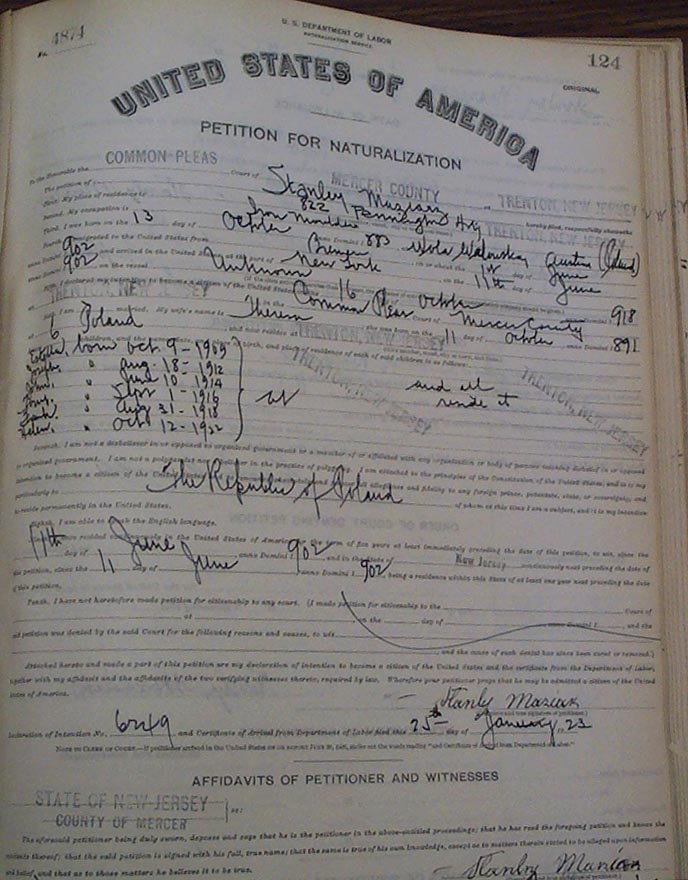 U. S. DEPARTMENT OF LABOR
NATURALIZATION SERVICE
No. 4874
124
ORIGINAL
UNITED STATES OF AMERICA
PETITION FOR NATURALIZATION
To the Honorable the COMMON PLEAS Court of MERCER COUNTY TRENTON, NEW JERSEY
The petition of Stanley Maziarz hereby filed, respectfully showeth:
First. My place of residence is 822 Pennington TRENTON, NEW JERSEY
Second. My occupation is Iron Moulder
Third. I was born on the 13 day of October anno Domini 1 883 at Austria (Poland)
Fourth. I emigrated to the United States from Bremen on or about the 1st day of June
anno Domini 1 902 and arrived in the United States at the port of New York on the 11th day of June
anno Domini 1 902 on the vessel Unknown
I declared my intention to become a citizen of the United States on the 16 day of October anno Domini 1 918
at TRENTON, NEW JERSEY in the Common Pleas Court of Mercer County
I am married. My wife's name is she was born on the 11 day of October anno Domini 1 891
at Poland and now resides at TRENTON, NEW JERSEY
6 children, and the name, date and place of birth, and place of residence of each of said children is as follows:
born Oct. 9 - 1909
" Aug - 18 - 1912
John, " June 10 - 1914
" Sept 1 - 1916
" Aug 31 - 1918
Helen, " Oct 12 -
at TRENTON, NEW JERSEY and all reside at TRENTON, NEW JERSEY
Seventh. I am not a disbeliever in or opposed to organized government or a member of or affiliated with any organization or body of persons teaching disbelief in or opposed
to organized government. I am not a polygamist nor a believer in the practice of polygamy. I am attached to the principles of the Constitution of the United States, and it is my
intention to become a citizen of the United States and to renounce absolutely and forever all allegiance and fidelity to any foreign prince, potentate, state, or sovereignty, and
particularly to The Republic of Poland of whom at this time I am a subject, and it is my intention
to reside permanently in the United States.
Eighth. I am able to speak the English language.
Ninth. I have resided continuously in the United States of America for the term of five years at least immediately preceding the date of this petition, to wit, since the
11th day of June anno Domini 1 902 and in the State of New Jersey continuously next preceding the date of
the petition, since the 11 day of June anno Domini 1 902, being a residence within this State of at least one year next preceding the date
of this petition.
Tenth. I have not heretofore made petition for citizenship to any court. (I made petition for citizenship to the Court of
at on the day of anno Domini 1 , and the
said petition was denied by the said Court for the following reasons and causes, to wit,
and the cause of such denial has since been cured or removed.)
Attached hereto and made a part of this petition are my declaration of intention to become a citizen of the United States and the certificate from the Department of Labor,
together with my affidavit and the affidavits of the two verifying witnesses thereto, required by law. Wherefore your petitioner prays that he may be admitted a citizen of the United
States of America.
Stanly Maziarz
(Complete and true signature of petitioner.)
Declaration of Intention No. 6249 and Certificate of Arrival from Department of Labor filed this 25th day of January, 19 23
NOTE TO CLERK OF COURT.—If petitioner arrived in the United States ON OR BEFORE JUNE 29, 1906, strike out the words reading "and Certificate of Arrival from Department of Labor."
AFFIDAVITS OF PETITIONER AND WITNESSES
STATE OF NEW JERSEY
COUNTY OF MERCER
ss:
The aforesaid petitioner being duly sworn, deposes and says that he is the petitioner in the above-entitled proceedings; that he has read the foregoing petition and knows the
contents thereof; that the said petition is signed with his full, true name; that the same is true of his own knowledge, except as to matters therein stated to be alleged upon information
and belief, and that as to those matters he believes it to be true.
Stanley Maziarz